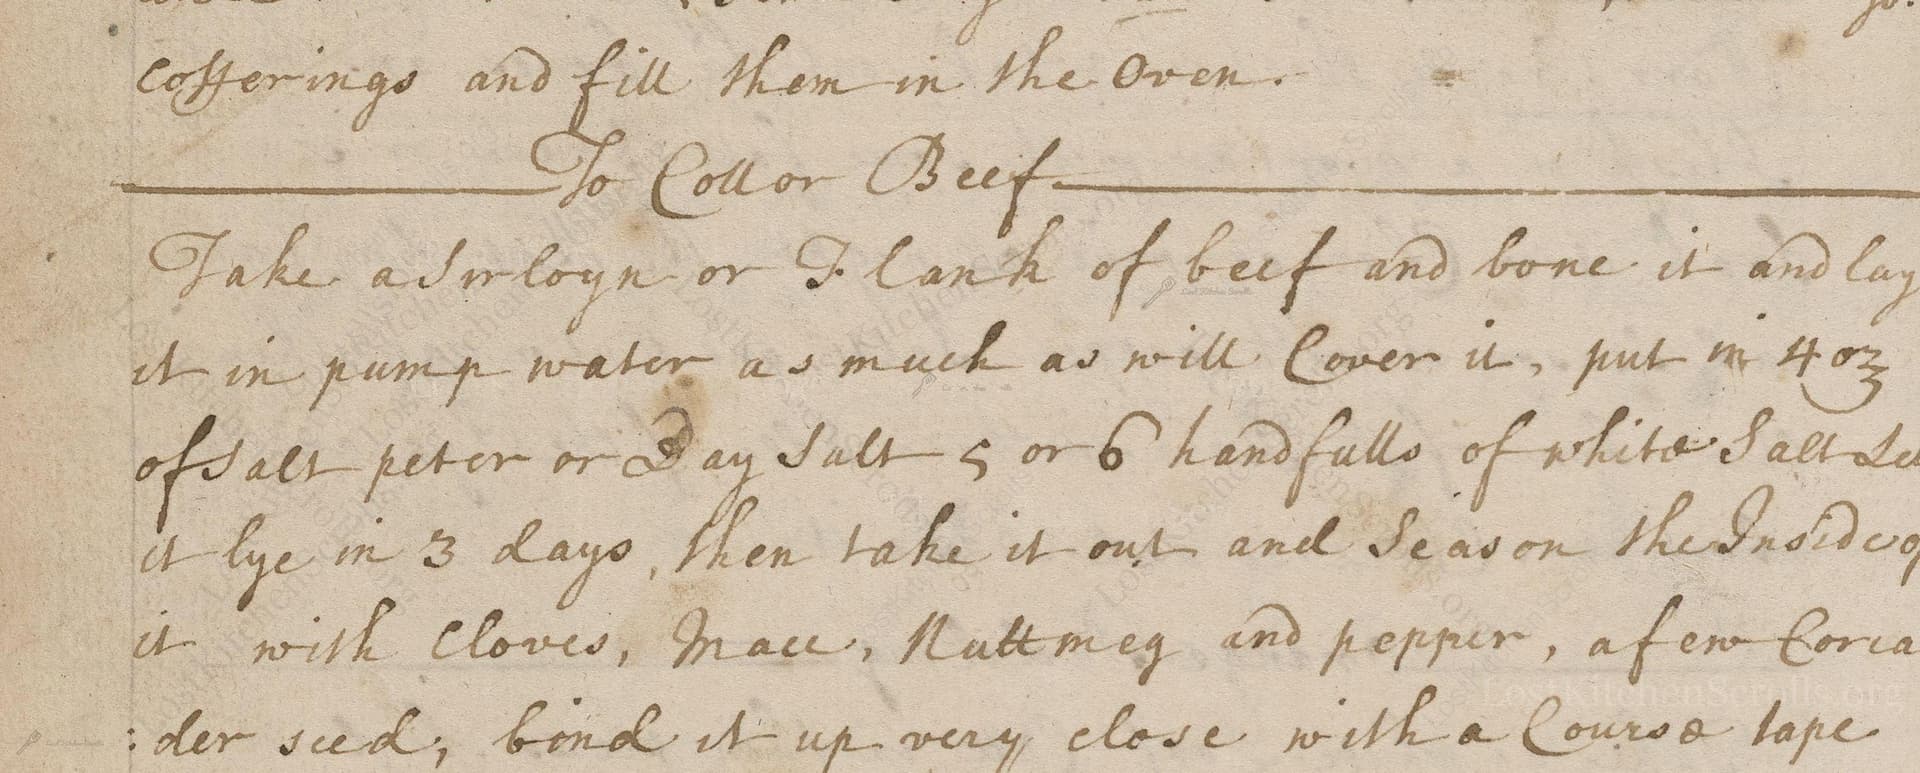 cofferings and fill them in the Oven.
To Collor Beef
Take a Sirloyn or Flank of beef and bone it and lay
it in pump water as much as will Cover it, put in 4 oz
of Salt peter or Bay Salt 5 or 6 handfulls of white Salt Let
it lye in 3 days, then take it out and Season the Inside of
it with Cloves, Mace, Nuttmeg and pepper, a few Corian
:der seed, bind it up very close with a Course tape
LostKitchenScrolls.org